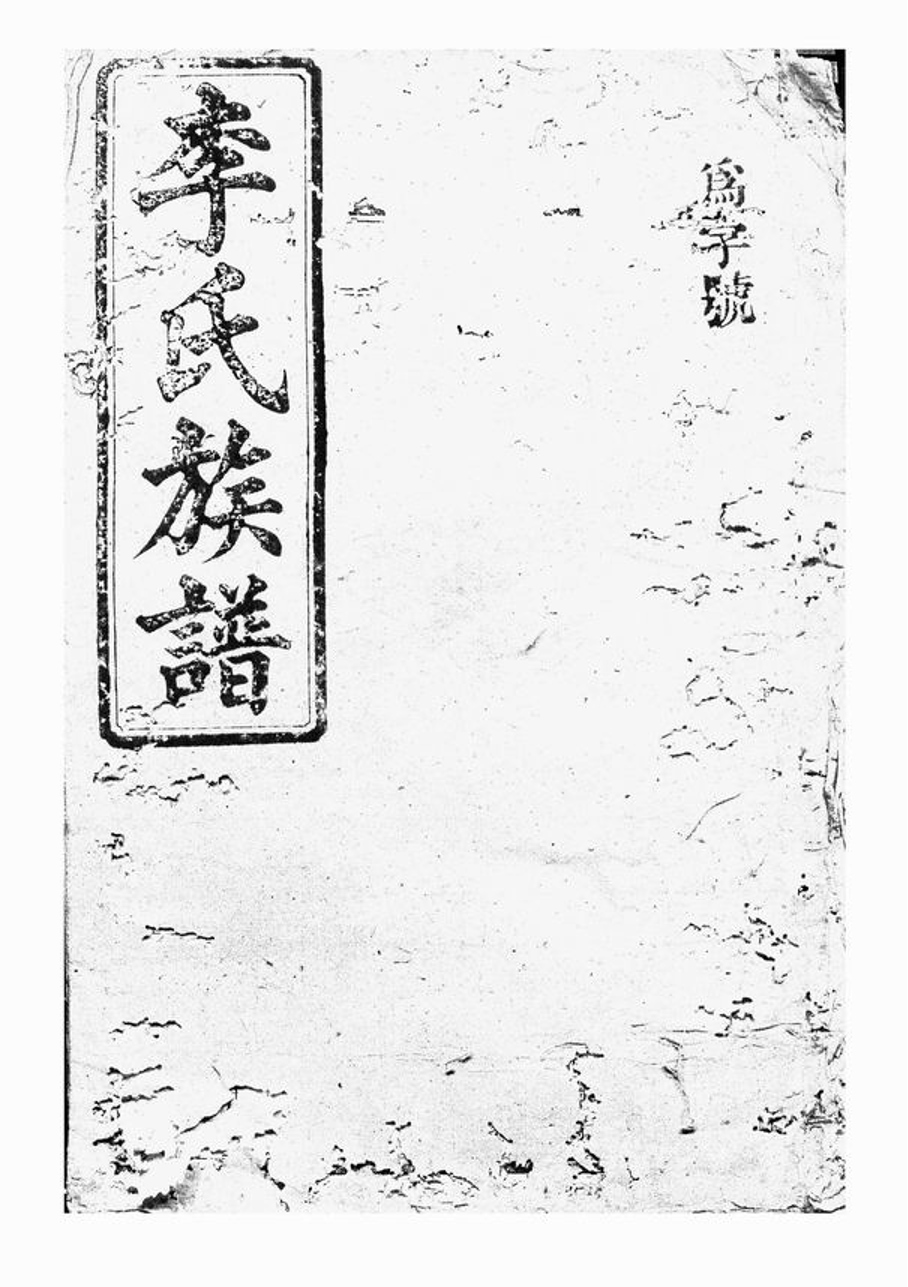 爲字號
李氏族譜